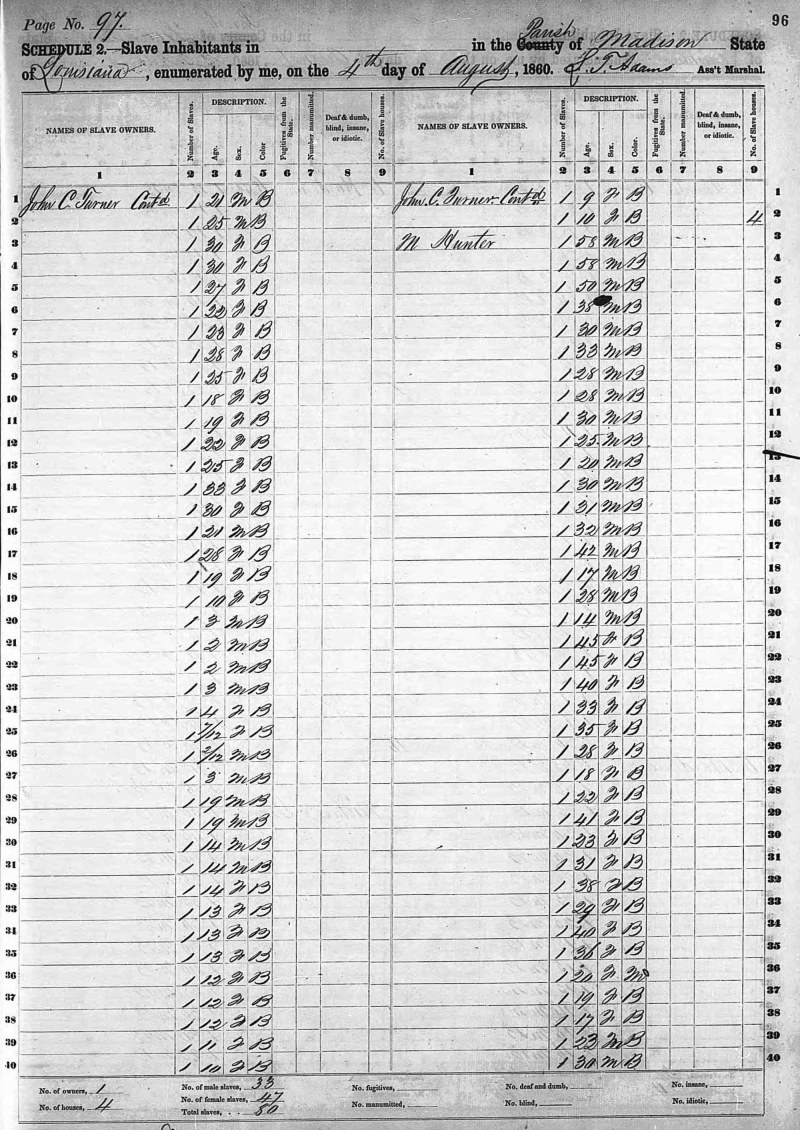 Page No. 97.
96
SCHEDULE 2.—Slave Inhabitants in in the County Parish of Madison State
of Louisiana, enumerated by me, on the 4th day of August, 1860. L. T. Adams Ass't Marshal.
NAMES OF SLAVE OWNERS. Number of Slaves. DESCRIPTION. Age. Sex. Color Fugitives from the State. Number manumitted. Deaf & dumb, blind, insane, or idiotic. No. of Slave houses. NAMES OF SLAVE OWNERS. Number of Slaves. DESCRIPTION. Age. Sex. Color. Fugitives from the State. Number manumitted. Deaf & dumb, blind, insane, or idiotic. No. of Slave houses.
1 2 3 4 5 6 7 8 9 1 2 3 4 5 6 7 8 9
1 John C. Turner Cont'd 1 21 M B John C. Turner Cont'd 1 9 F B 1
2 1 25 M B 1 10 F B 4 2
3 1 30 F B M Hunter 1 58 M B 3
4 1 30 F B 1 58 M B 4
5 1 27 F B 1 50 M B 5
6 1 22 F B 1 38 M B 6
7 1 23 F B 1 30 M B 7
8 1 28 F B 1 33 M B 8
9 1 25 F B 1 28 M B 9
10 1 18 F B 1 28 M B 10
11 1 19 F B 1 30 M B 11
12 1 22 F B 1 25 M B 12
13 1 25 F B 1 20 M B 13
14 1 33 F B 1 30 M B 14
15 1 30 F B 1 31 M B 15
16 1 21 M B 1 32 M B 16
17 1 28 F B 1 42 M B 17
18 1 19 F B 1 17 M B 18
19 1 10 F B 1 28 M B 19
20 1 3 M B 1 14 M B 20
21 1 2 M B 1 45 F B 21
22 1 2 M B 1 45 F B 22
23 1 3 M B 1 40 F B 23
24 1 4 F B 1 33 F B 24
25 1 7/12 F B 1 35 F B 25
26 1 2/12 M B 1 28 F B 26
27 1 3 M B 1 18 F B 27
28 1 19 M B 1 22 F B 28
29 1 19 M B 1 41 F B 29
30 1 14 M B 1 23 F B 30
31 1 14 M B 1 31 F B 31
32 1 14 F B 1 38 F B 32
33 1 13 F B 1 29 F B 33
34 1 13 F B 1 40 F B 34
35 1 13 F B 1 36 F B 35
36 1 12 F B 1 20 F M 36
37 1 12 F B 1 19 F B 37
38 1 12 F B 1 17 F B 38
39 1 11 F B 1 23 M B 39
40 1 10 F B 1 30 M B 40
No. of owners, 1 No. of male slaves, 33 No. fugitives, No. of deaf and dumb, No. insane,
No. of houses, 4 No. of female slaves, 47 No. manumitted, No. blind, No. idiotic,
Total slaves, 80